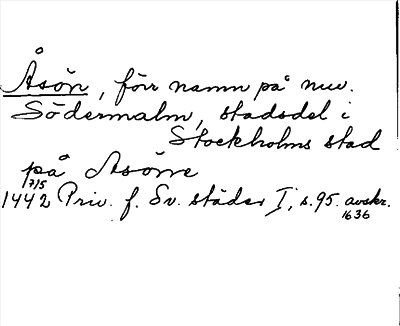 Åsön, förr namn på nuv.
Södermalm, stadsdel i
Stockholms stad
på Asöne
7/5
1442 Priv. f. Sv. städer I, s. 95. avskr.
1636